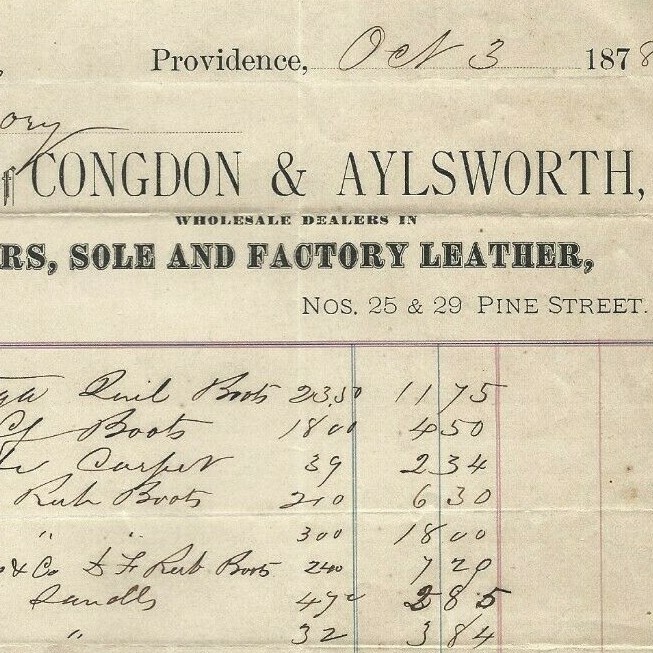 Providence, Oct 3 1878
ory
CONGDON & AYLSWORTH,
WHOLESALE DEALERS IN
RS, SOLE AND FACTORY LEATHER,
NOS. 25 & 29 PINE STREET.
Boots 23.50 11 75
Boots 18 00 4 50
Carpet 39 2 34
Rub Boots 210 6 30
" " 300 18 00
& Co Rub Boots 240 7 20
Sandls 47 2 85
" 32 3 84